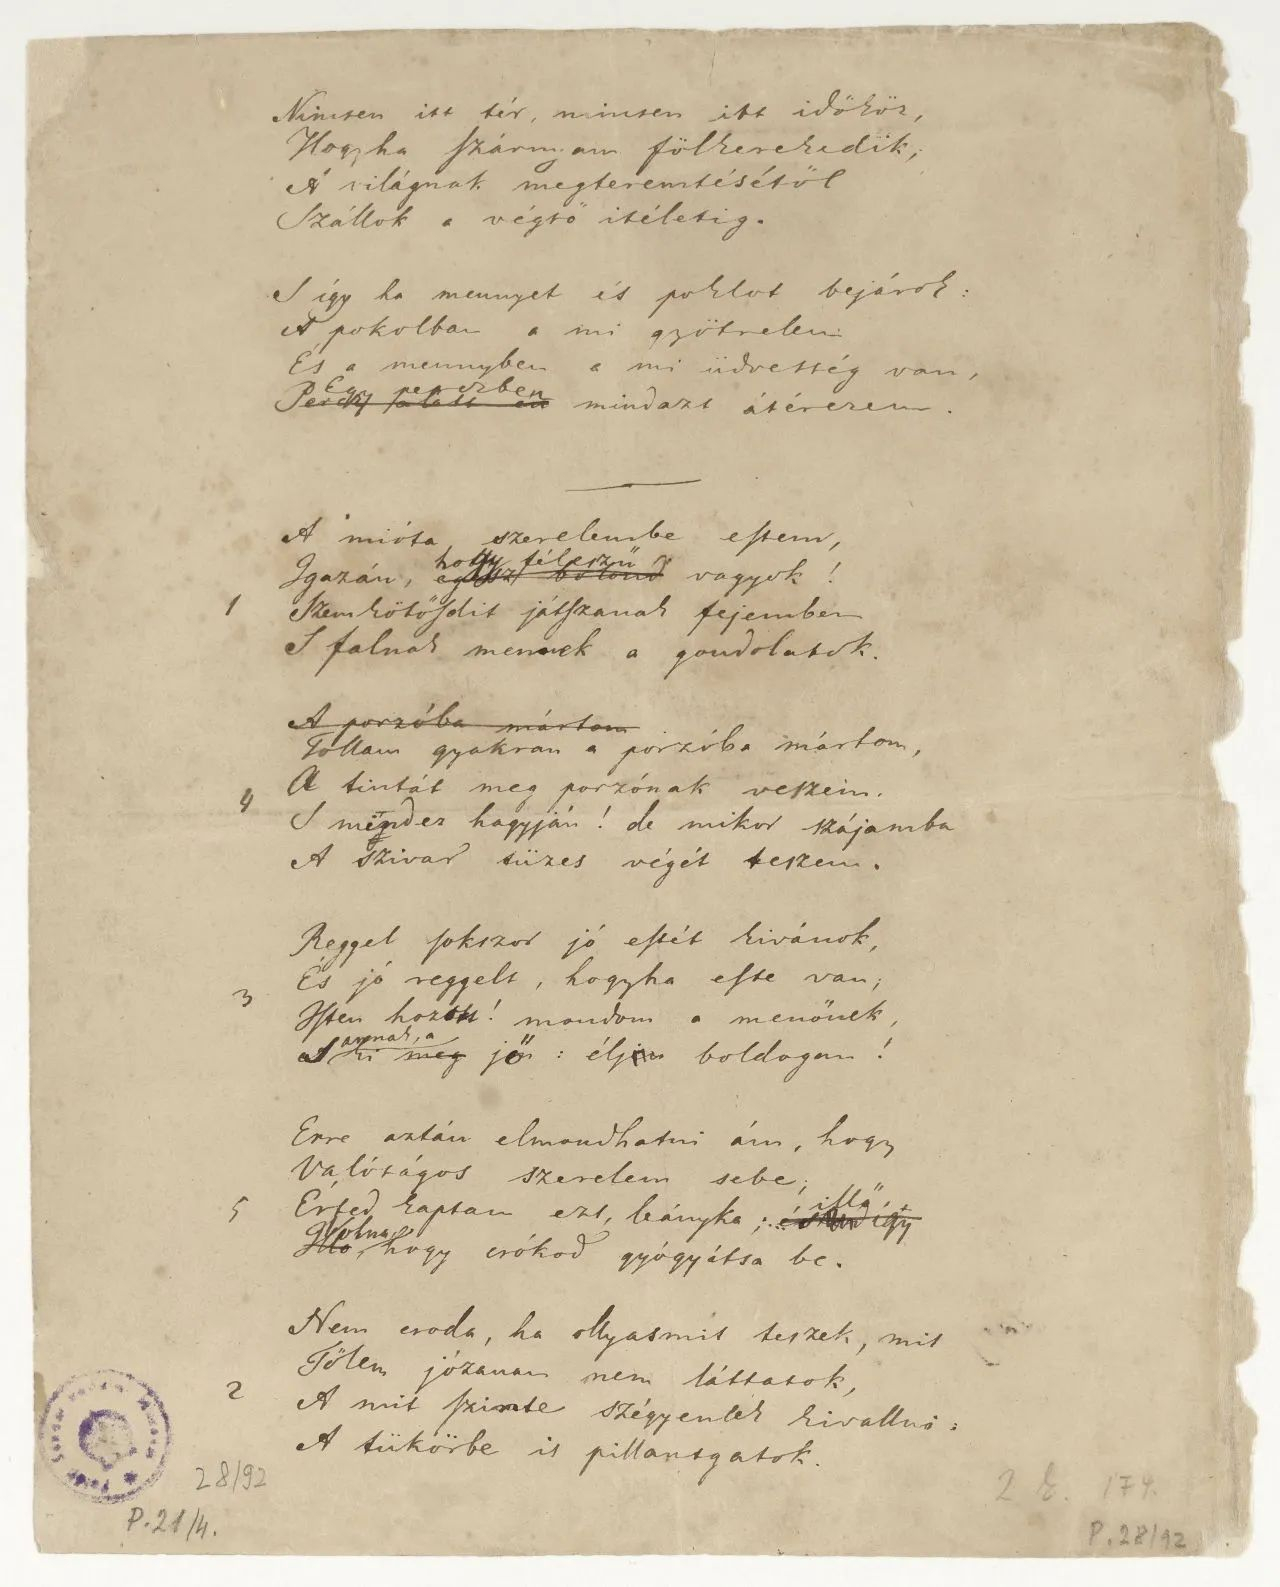 Nincsen itt tér, nincsen itt időkör,
Hogyha szárnyam fölkerekedik;
A világnak megteremtésétől
Szállok a végső itéletig.
S így ha mennyet és poklot bejárok:
A pokolban a mi gyötrelem
És a mennyben a mi üdvesség van,
Egy perczben
Percz alatt én mindazt átérezem.
A mióta szerelembe estem,
hogy féleszü
Igazán, egész bolond vagyok!
1 Szemkötősdit játszanak fejemben
S falnak mennek a gondolatok.
A porzóba mártom
Tollam gyakran a porzóba mártom,
A tintát meg porzónak veszem.
4 S mindez hagyján! de mikor szájamba
A szivar tüzes végét teszem.
Reggel sokszor jó estét kivánok,
És jó reggelt, hogyha este van;
3 Isten hozott! mondom a menőnek,
annak, a
S ki meg jő: éljen boldogan!
Erre aztán elmondhatni ám, hogy
Valóságos szerelem sebe;
illő
5 Érted kaptam ezt, leányka;
Volna,
hogy csókod gyógyítsa be.
Nem csoda, ha ollyasmit teszek, mit
Tőlem józanan nem láttatok,
2 A mit szinte szégyenlek kivallni:
A tükörbe is pillantgatok.
28/92
P.21/4.
2 k. 174.
P.28/92